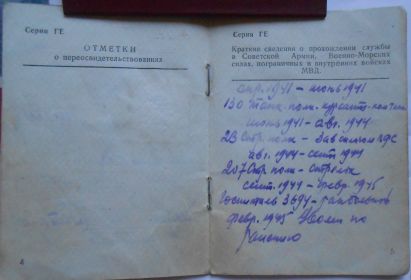 Серия ГЕ
ОТМЕТКИ
о переосвидетельствованиях
4
Серия ГЕ
Краткие сведения о прохождении службы
в Советской Армии, Военно-Морских
силах, пограничных и внутренних войсках
МВД.
апр. 1941 – июнь 1941
130 Танк. полк. курсант
июнь 1941 – авг. 1944
23 Стр. полк –
авг. 1944 – сент 1944
207 Стр. полк – стрелок
сент. 1944 – февр. 1945
Госпиталь 3694 – ранбольной
февр. 1945 Уволен по
ранению
5